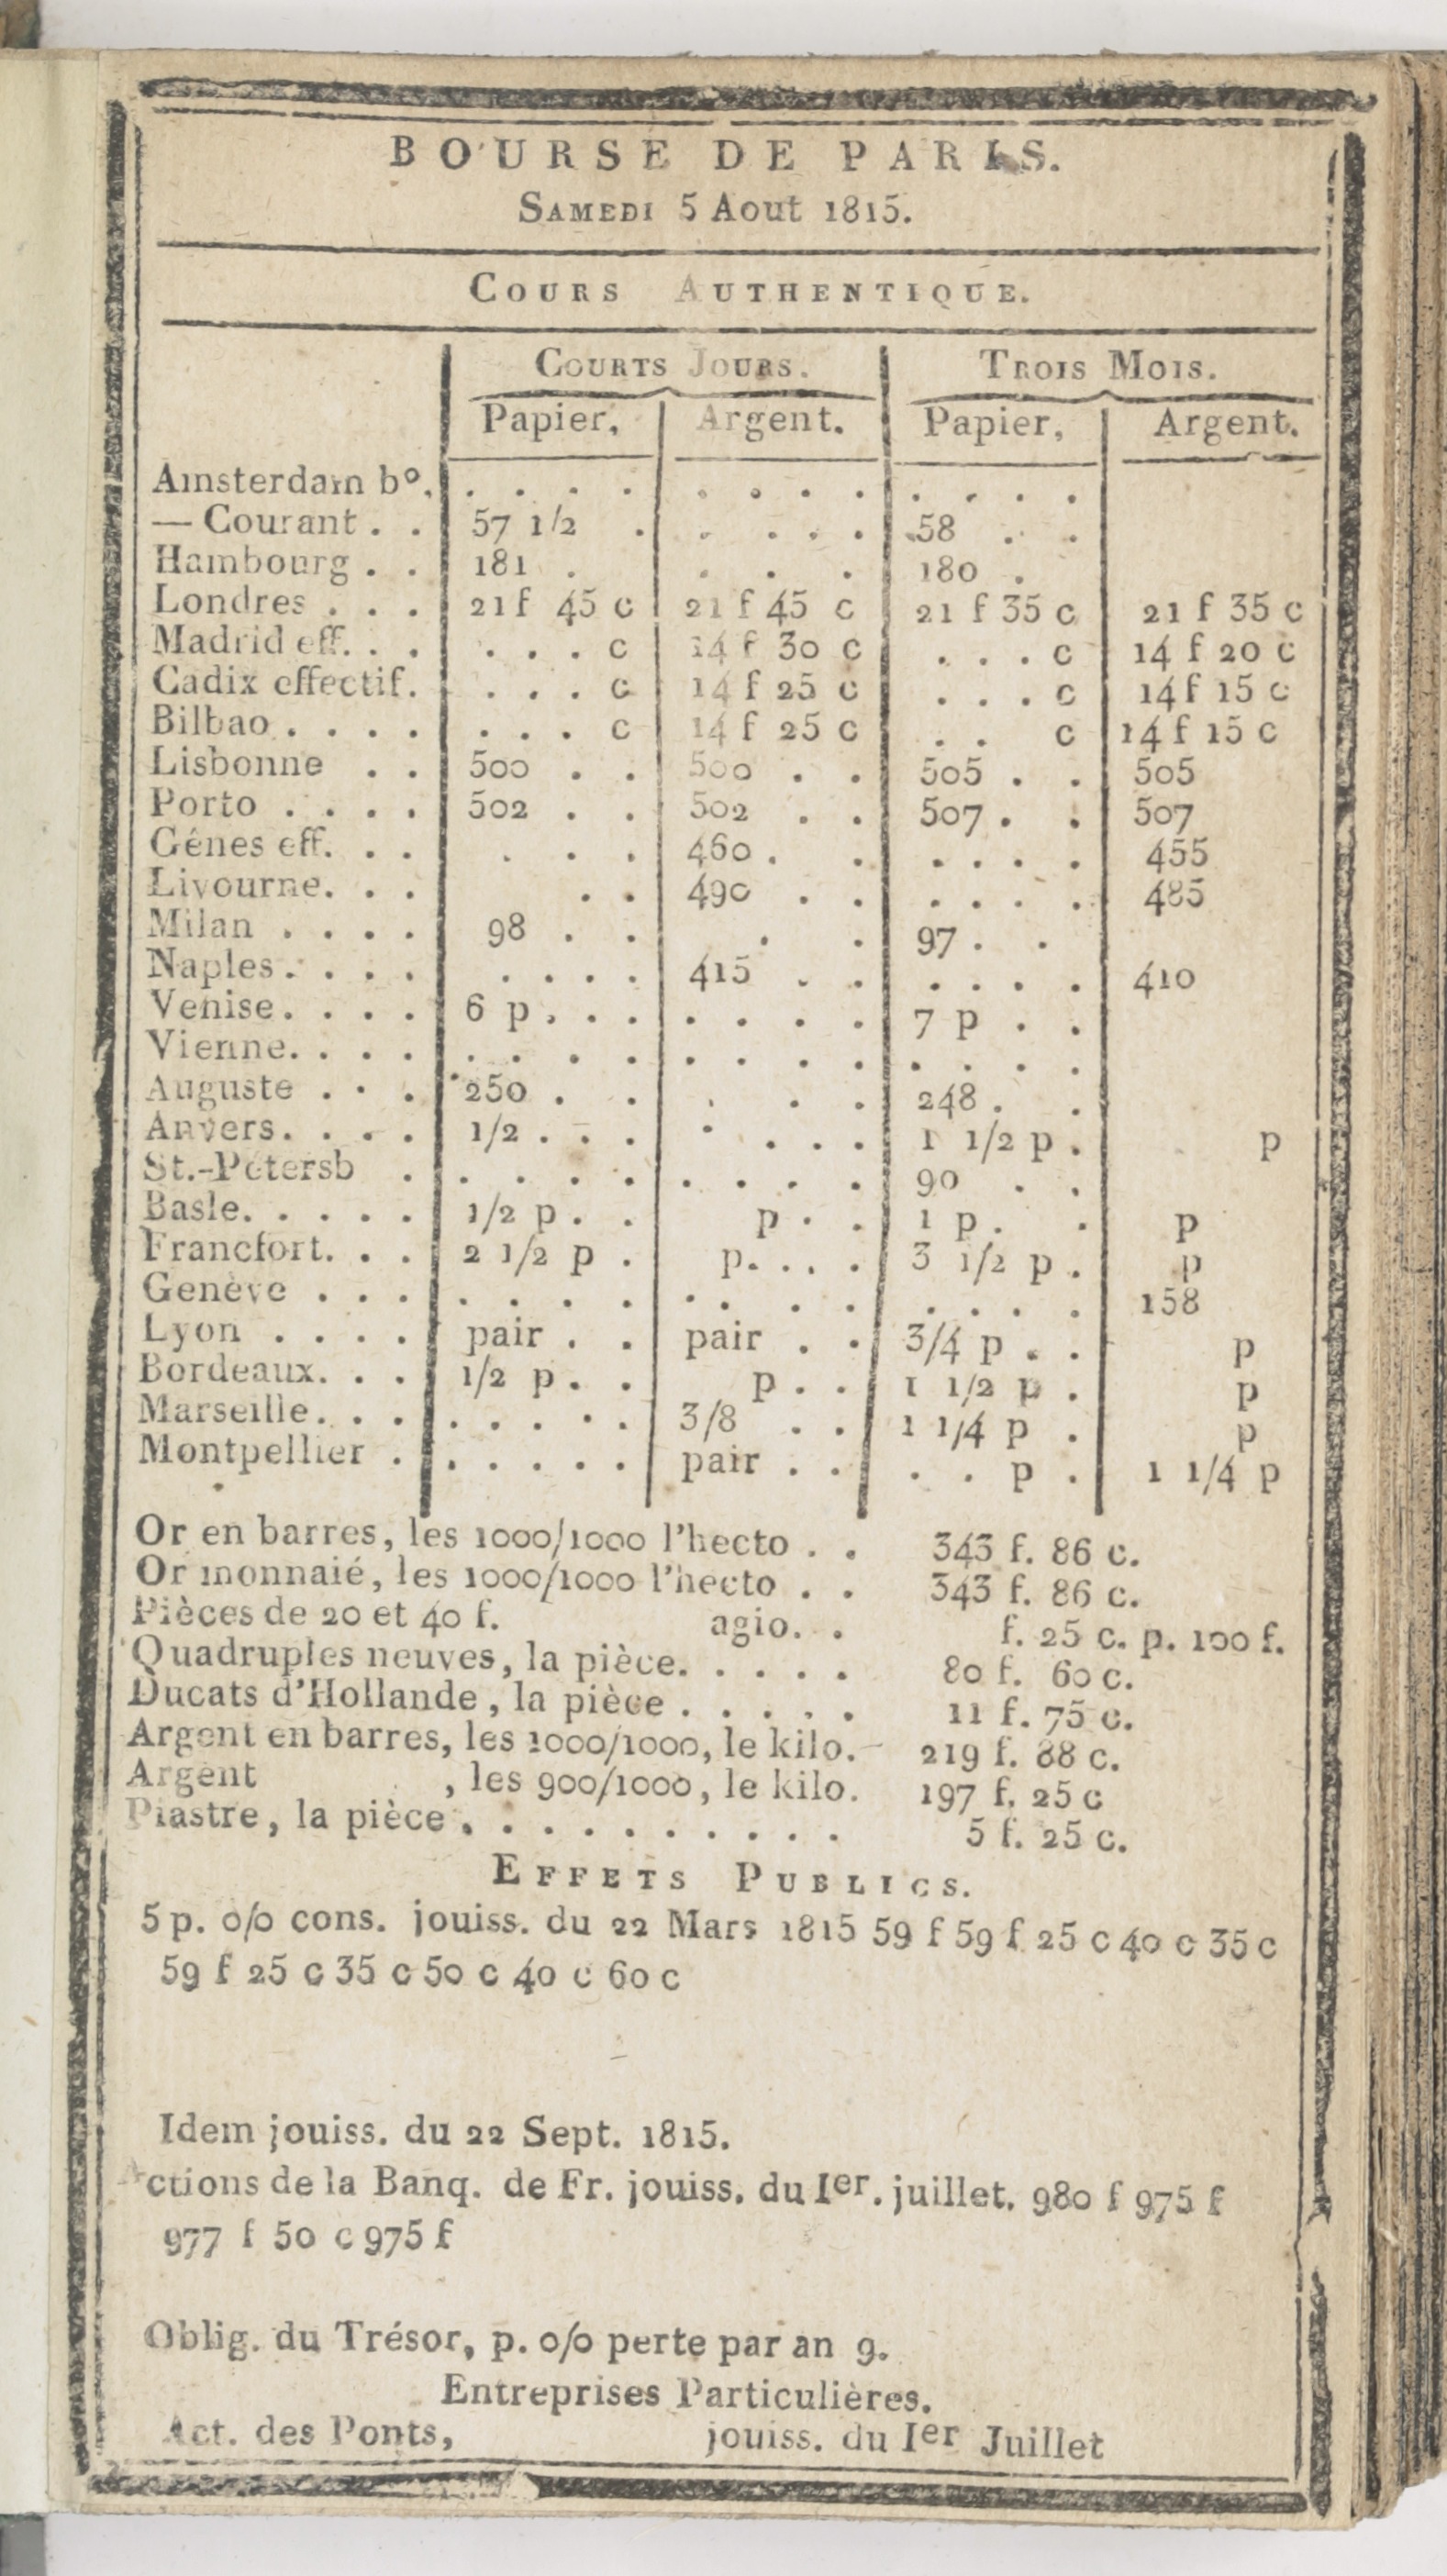 BOURSE DE PARIS.
SAMEDI 5 Aout 1815.
COURS AUTHENTIQUE.
COURTS JOURS. TROIS MOIS.
Papier, Argent. Papier, Argent.
Amsterdam bº. . . . . . . . . . . . . .
— Courant . . 57 1/2 . . . . . 58 . .
Hambourg . . 181 . . . . 180 .
Londres . . . 21 f 45 c 21 f 45 c 21 f 35 c 21 f 35 c
Madrid eff. . . . . . c 14 f 30 c . . . c 14 f 20 c
Cadix effectif. . . . c 14 f 25 c . . . c 14 f 15 c
Bilbao . . . . . . . c 14 f 25 c . . c 14 f 15 c
Lisbonne . . 500 . . 500 . . 505 . . 505
Porto . . . . 502 . . 502 . . 507 . . 507
Gênes eff. . . . . . 460 . . . . . . 455
Livourne. . . . . 490 . . . . . . 485
Milan . . . . 98 . . . . 97 . .
Naples. . . . . . . . 415 . . . . . . 410
Venise. . . . 6 p . . . . . . . 7 p . .
Vienne. . . . . . . . . . . . . . . .
Auguste . . . 250 . . . . . 248 . .
Anvers. . . . 1/2 . . . . . . . 1 1/2 p . p
St.-Pétersb . . . . . . . . . 90 . .
Basle. . . . . 1/2 p . . p . . 1 p . . p
Francfort. . . 2 1/2 p . p. . . . 3 1/2 p . p
Genève . . . . . . . . . . . . . . . 158
Lyon . . . . pair . . pair . . 3/4 p . . p
Bordeaux. . . 1/2 p . . p . . 1 1/2 p . p
Marseille. . . . . . . . 3/8 . . 1 1/4 p . p
Montpellier . . . . . . pair . . . . p . 1 1/4 p
Or en barres, les 1000/1000 l'hecto . . 343 f. 86 c.
Or monnaié, les 1000/1000 l'hecto . . 343 f. 86 c.
Pièces de 20 et 40 f. agio. . f. 25 c. p. 100 f.
Quadruples neuves, la pièce. . . . . 80 f. 60 c.
Ducats d'Hollande, la pièce . . . . . 11 f. 75 c.
Argent en barres, les 1000/1000, le kilo. 219 f. 88 c.
Argent , les 900/1000, le kilo. 197 f. 25 c
Piastre, la pièce . . . . . . . . . . 5 f. 25 c.
EFFETS PUBLICS.
5 p. o/o cons. jouiss. du 22 Mars 1815 59 f 59 f 25 c 40 c 35 c
59 f 25 c 35 c 50 c 40 c 60 c
Idem jouiss. du 22 Sept. 1815.
Actions de la Banq. de Fr. jouiss. du Ier. juillet. 980 f 975 f
977 f 50 c 975 f
Oblig. du Trésor, p. o/o perte par an 9.
Entreprises Particulières.
Act. des Ponts, jouiss. du Ier Juillet